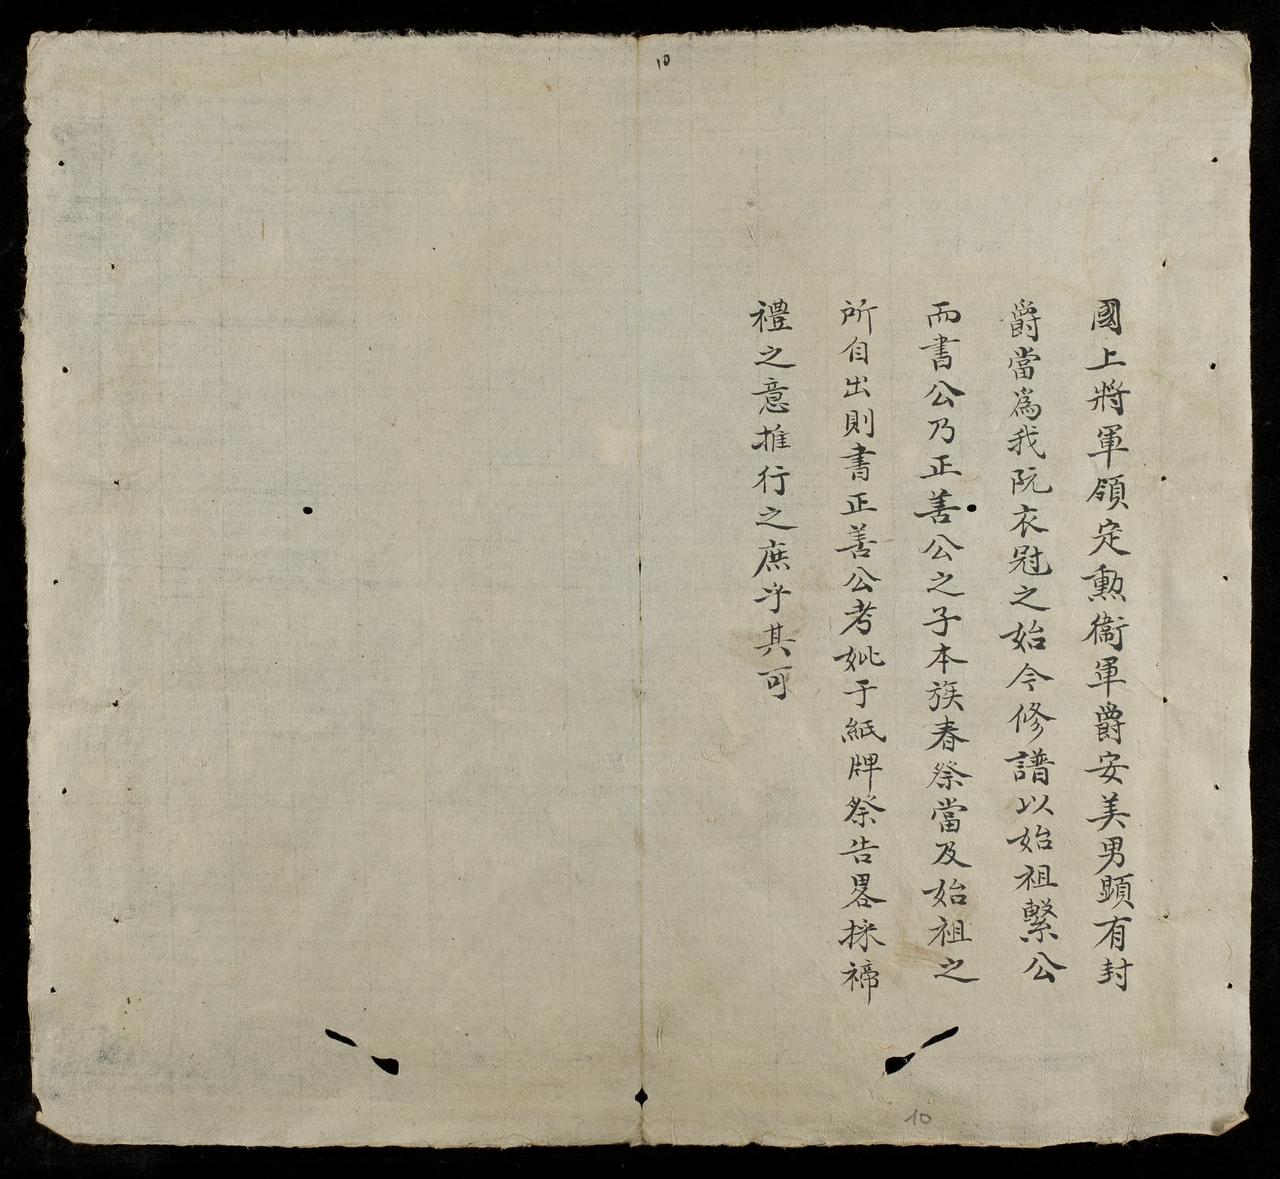 10
國上將軍領定勲衞軍爵安美男顕有封
爵當爲我阮衣冠之始今修譜以始祖繫公
而書公乃正善公之子本族春祭當及始祖之
所自出則書正善公考妣于紙牌祭告畧採禘
禮之意推行之庶乎其可
10